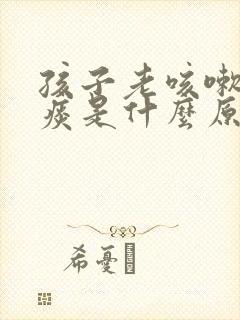 孩子老咳嗽
痰是什麼原
希憂